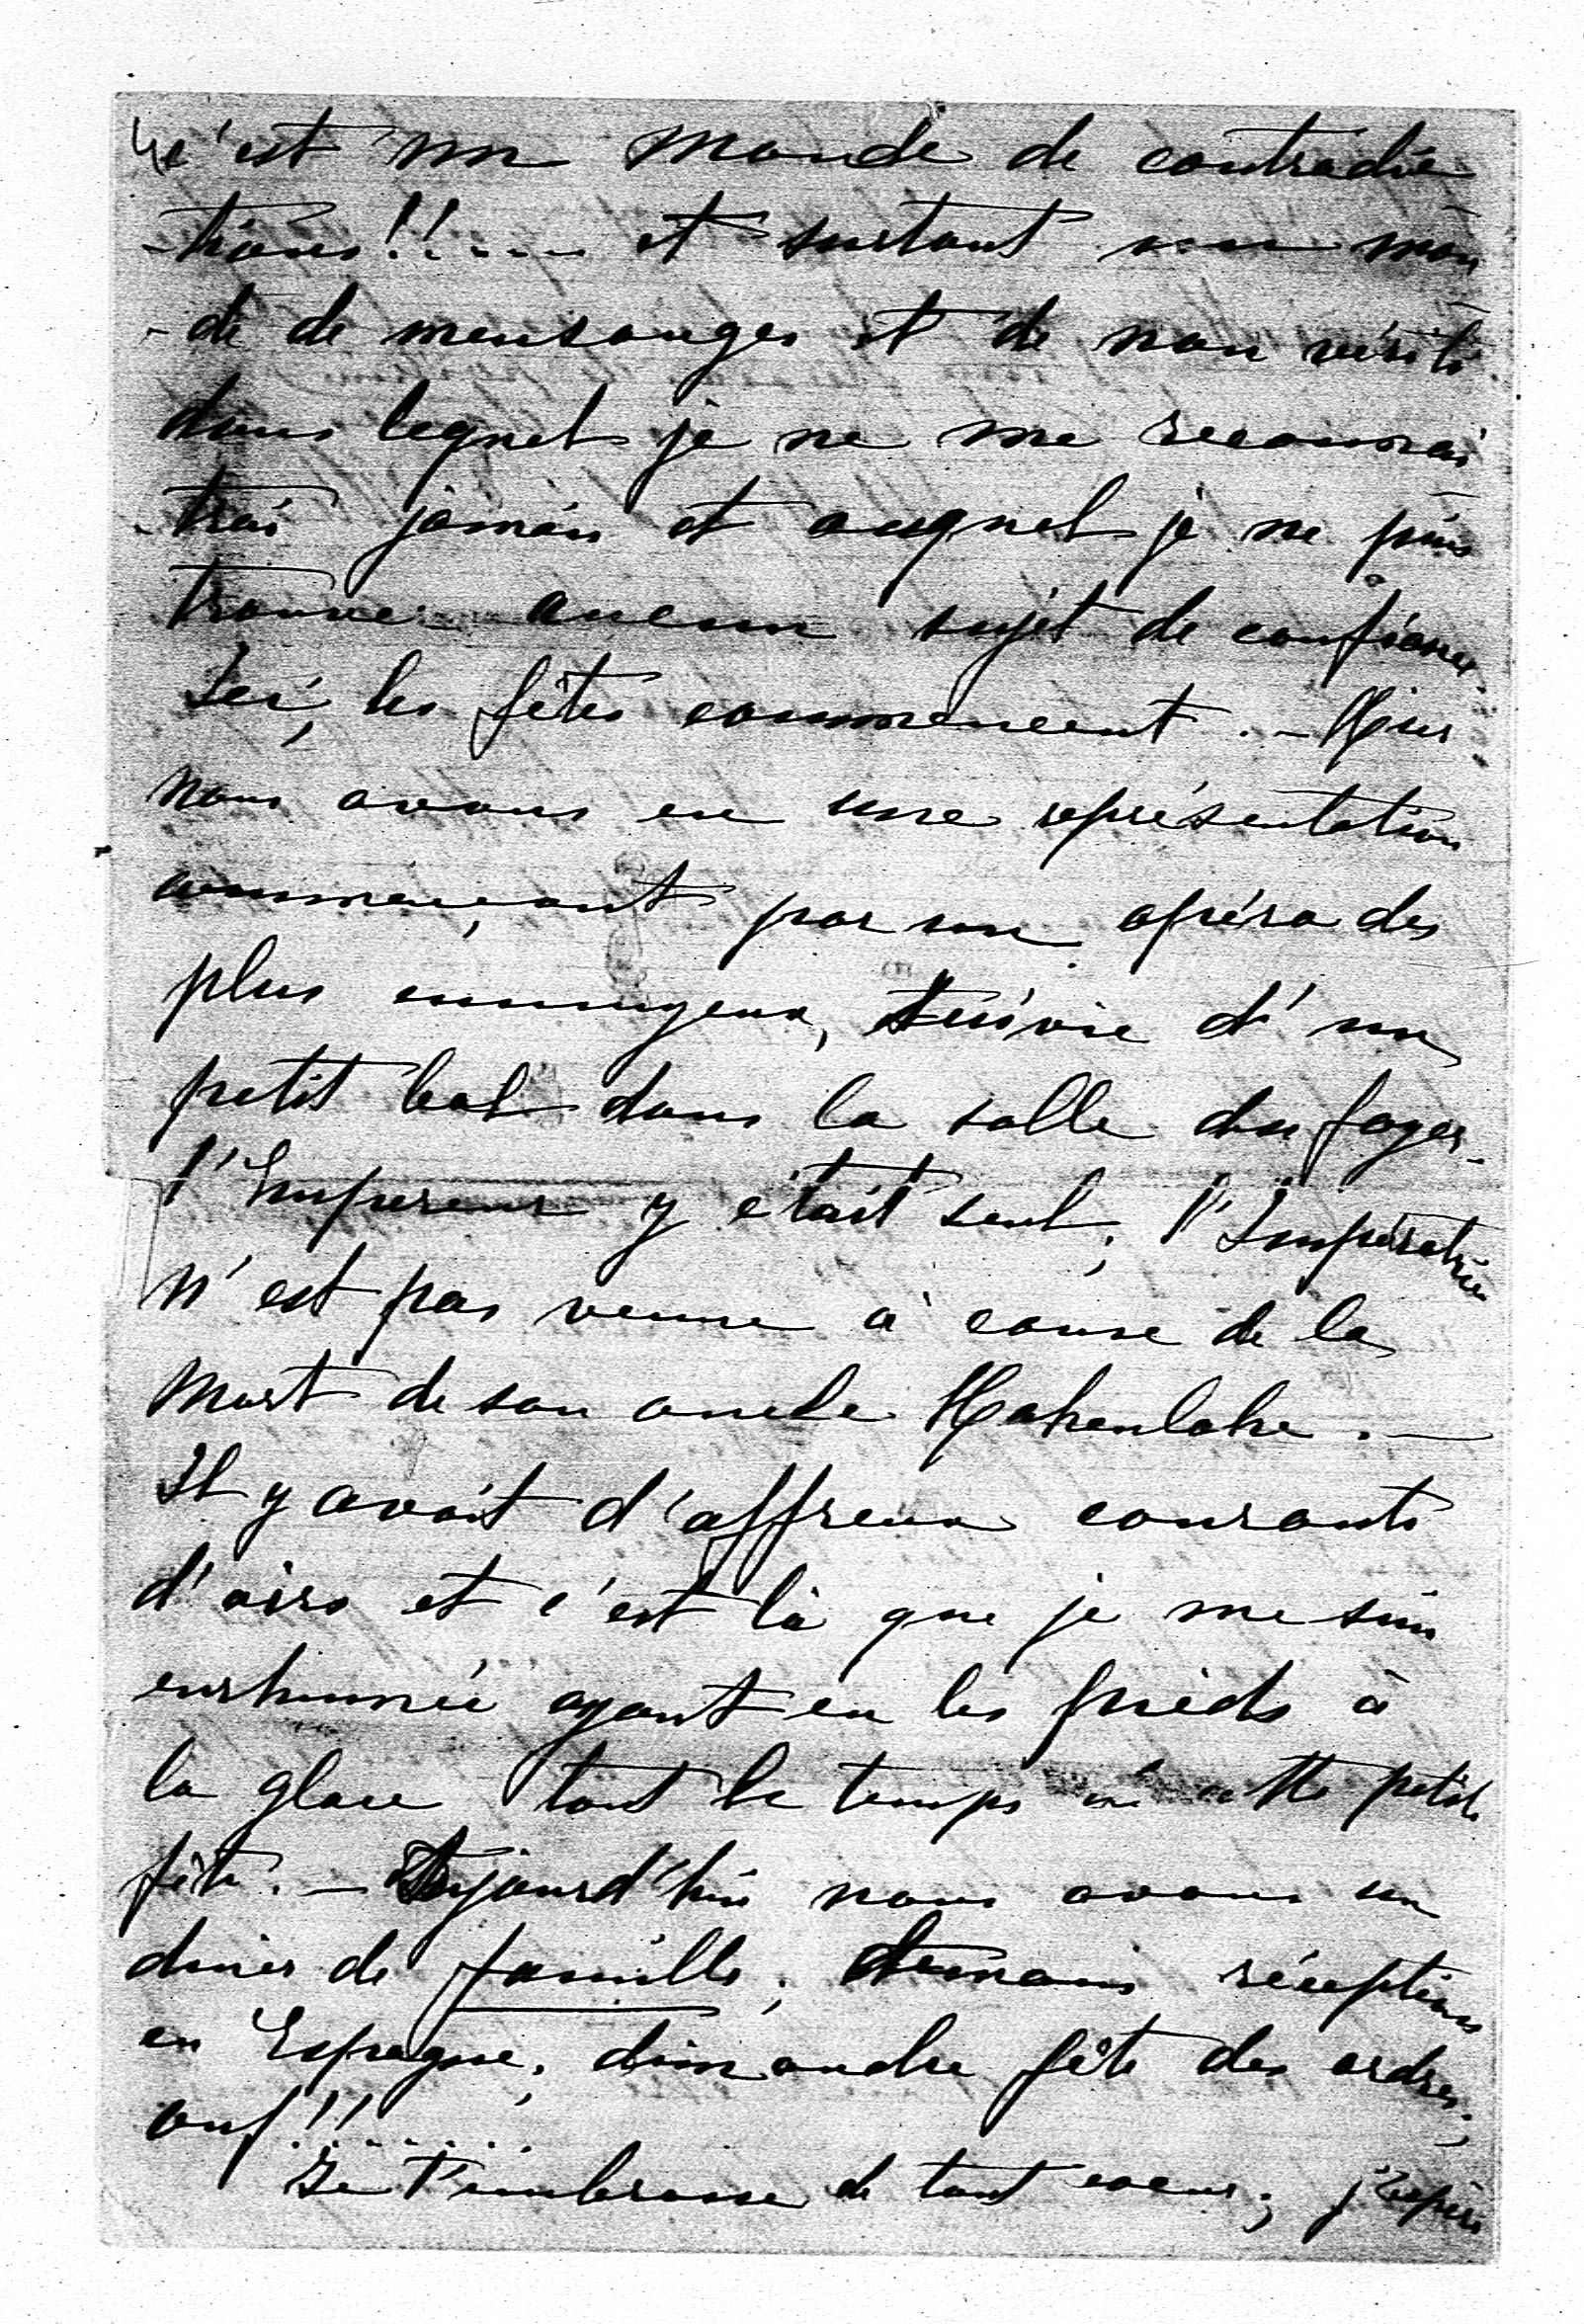 4/ c'est un monde de contradic
-tions!!.... et surtout un mon
-de de mensonges et de non vérité
dans lequel je ne me reconnai
-trai jamais et auquel je ne puis
trouver aucun sujet de confiance.
Ici, les fêtes commencent. - Hier
nous avons eu une représentation
commençant par un opéra des
plus ennuyeux, suivie d'un
petit bal dans la salle du foyer -
l'Empereur y était seul; l'Impératrice
n'est pas venue à cause de la
mort de son oncle Hohenlohe. -
Il y avait d'affreux courants
d'airs et c'est là que je me suis
enrhumée ayant eu les pieds à
la glace tout le temps de cette petite
fête. - Aujourd'hui nous avons un
diner de famille; demain réception
en Espagne; dimanche fête des ordres;
ouf!!......
Je t'embrasse de tout coeur; j'espère